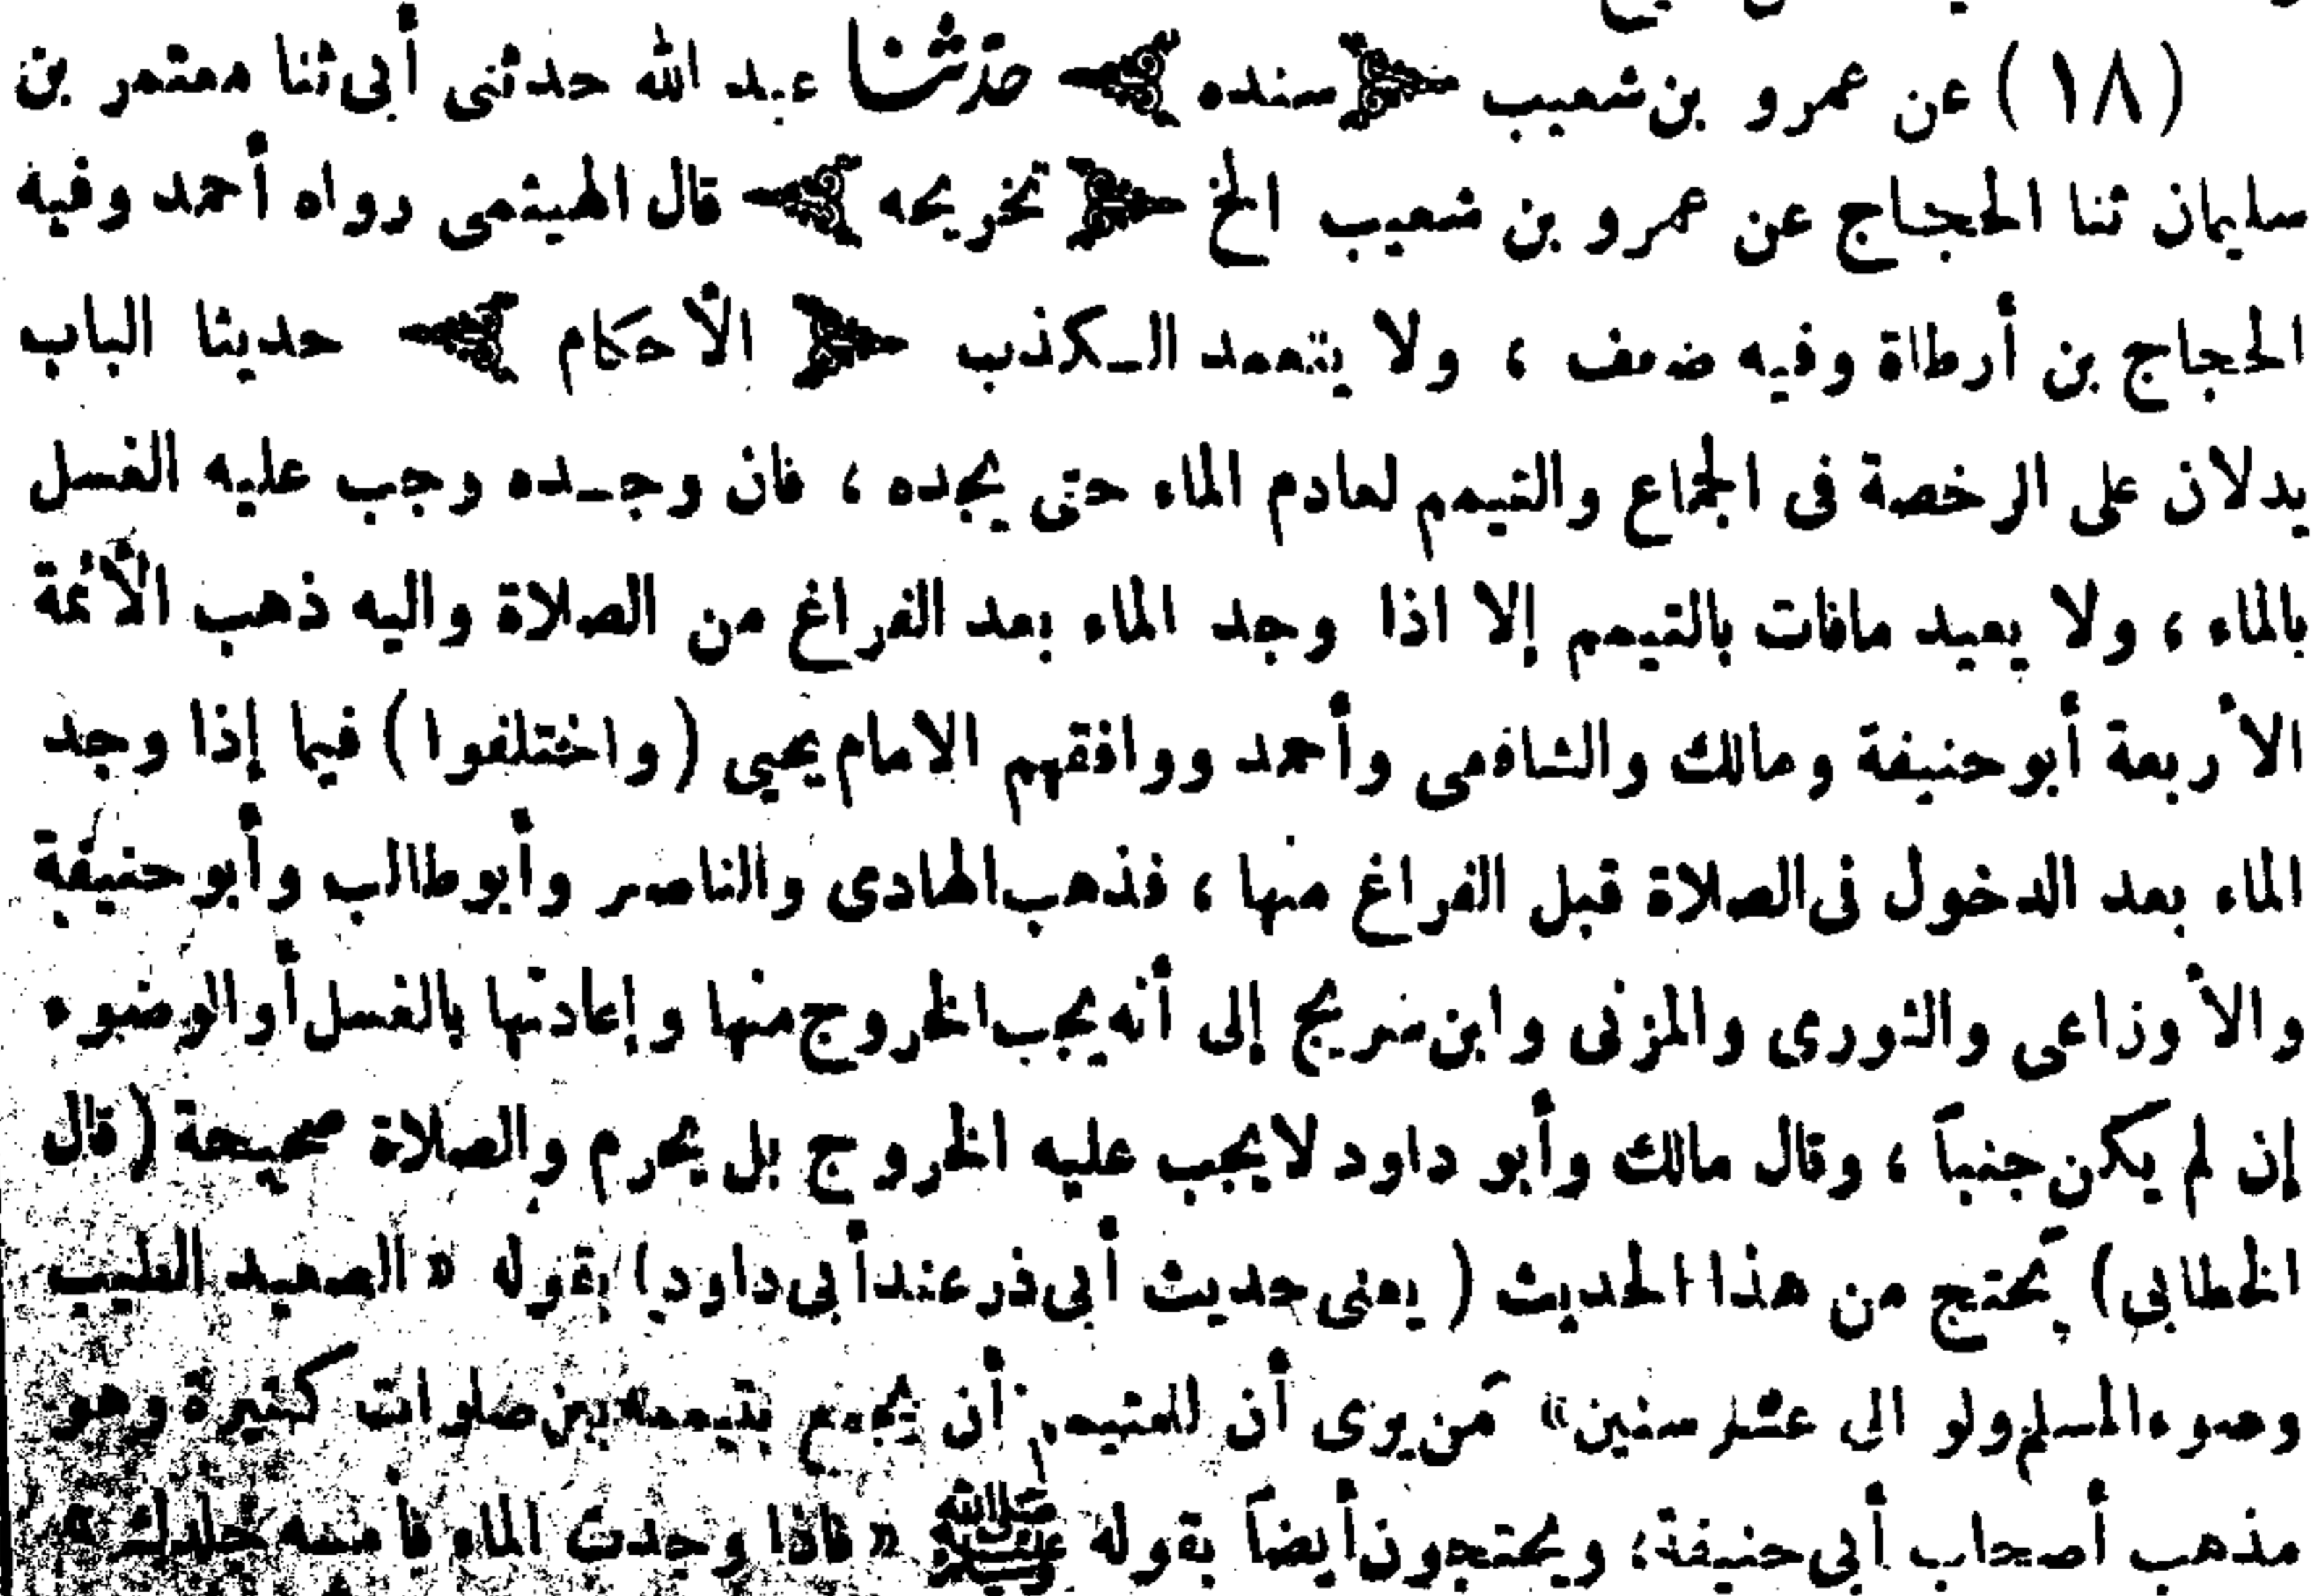 (١٨) عن عمرو بن شعيب ﴿ سنده ﴾ حدثنا عبد الله حدثنى أبى ثنا معتمر بن
سليمان ثنا الحجاج عن عمرو بن شعيب الخ ﴿ تخريجه ﴾ قال الهيثمى رواه أحمد وفيه
الحجاج بن أرطاة وفيه ضعف ، ولا يتعمد الـكذب ﴿ الأحكام ﴾ حديثا الباب
يدلان على الرخصة فى الجماع والتيمم لعادم الماء حتى يجده ، فان وجـده وجب عليه الغسل
بالماء ، ولا يعيد مافات بالتيمم إلا اذا وجد الماء بعد الفراغ من الصلاة واليه ذهب الأئمة
الأربعة أبو حنيفة ومالك والشافعى وأحمد ووافقهم الامام يحيى (واختلفوا) فيما إذا وجد
الماء بعد الدخول فى الصلاة قبل الفراغ منها ، فذهب الهادى والناصر وأبو طالب وأبو حنيفة
والأوزاعى والثورى والمزنى وابن سريج إلى أنه يجب الخروج منها وإعادتها بالغسل أو الوضوء
إن لم يكن جنباً ، وقال مالك وأبو داود لا يجب عليه الخروج بل يحرم والصلاة صحيحة (قال
الخطابى) يَحتج من هذا الحديث (يعنى حديث أبى ذر عند أبى داود) بقوله « الصعيد الطيب
وضوء المسلم ولو الى عشر سنين» مَن يرى أن للمتيمم أن يجمع بتيممه بين صلوات كثيرة وهو
مذهب أصحاب أبى حنيفة، ويحتجون أيضاً بقوله ﷺ « فاذا وجدت الماء فأمسه جلدك »